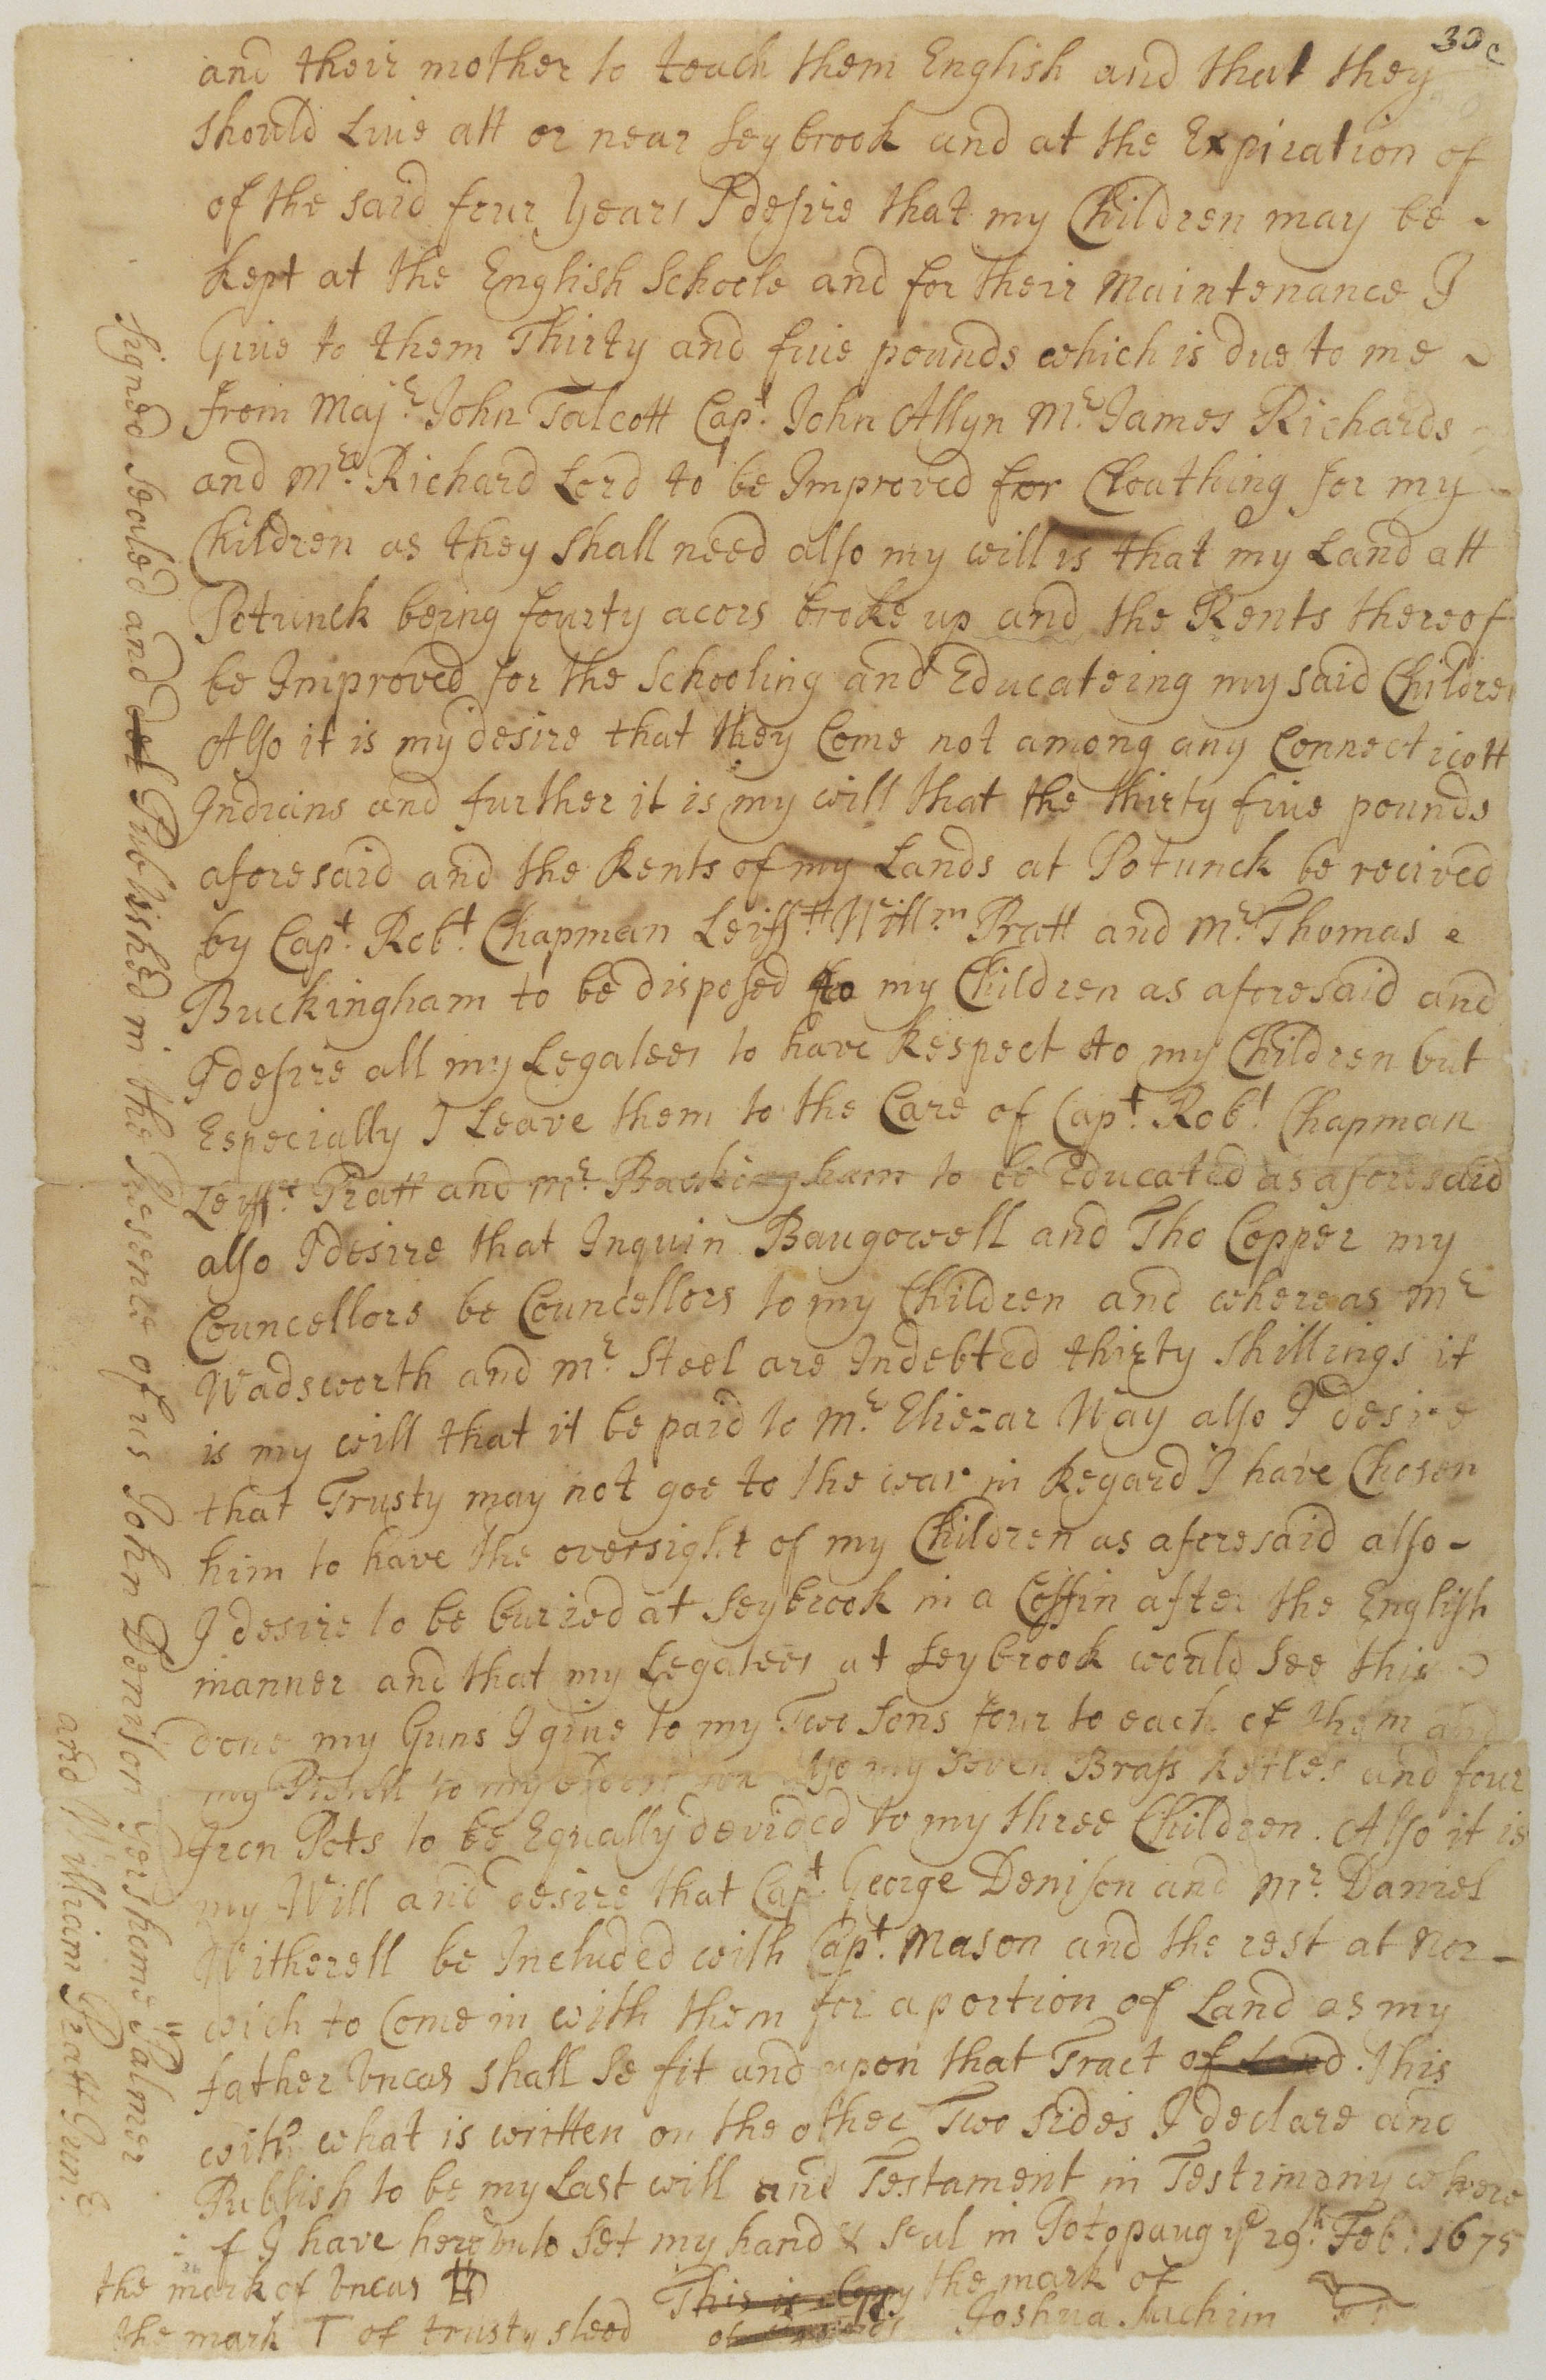 30c
and their mother to teach them English and that they
should Live att or near Seybrook and at the Expiration of
of the said four years I desire that my Children may be
kept at the English Schoole and for their Maintenance I
Give to them Thirty and five pounds which is due to me
from Majr. John Talcott Capt. John Allyn Mr. James Richards
and Mr. Richard Lord to be Improved for Cloathing for my
Children as they shall need also my will is that my Land att
Potunck being fourty acors broke up and the Rents thereof
be Improved for the Schooling and Educateing my said Children
Also it is my desire that they Come not among any Connecticott
Indians and further it is my will that the thirty five pounds
aforesaid and the Rents of my Lands at Potunck be recived
by Capt. Robt. Chapman Leifftt. Willm. Pratt and Mr. Thomas
Buckingham to be disposed to my Children as aforesaid and
I desire all my Legatees to have Respect to my Children but
Especially I Leave them to the Care of Capt. Robt. Chapman
Leifft. Pratt and Mr. Buckingham to be Educated as aforesaid
also I desire that Inquin Baugowell and Tho Copper my
Councellors be Councellors to my Children and whereas Mr
Wadsworth and Mr. Steel are Indebted thirty shillings it
is my will that it be paid to Mr. Eliezar Way also I desire
that Trusty may not goe to the war in Regard I have Chosen
him to have the oversight of my Children as aforesaid also
I desire to be buried at Seybrook in a Coffin after the English
manner and that my Legatees at Seybrook would See this
done my Guns I give to my Two Sons four to each of them and
my Pistill to my eldest son also my Seven Brass kettles and four
Iron Pots to be Equally devided to my three Children. Also it is
my Will and desire that Capt. George Denison and Mr. Daniel
Witherell be Included with Capt. Mason and the rest at Nor-
wich to Come in with them for a portion of Land as my
father Uncas shall Se fit and upon that Tract of Land. This
with what is written on the other Two sides I declare and
Publish to be my Last will and Testament in Testimony where
of I have hereunto Set my hand & Seal in Potopaug ye 29th. Feb: 1675
the mark of Uncas
the mark T of trusty
This is Coppy
the mark of
Joshua Sachim
Signed Sealed and del Published in the Presence of us John Denison Gershame Palmer
and William Pratt Junr.